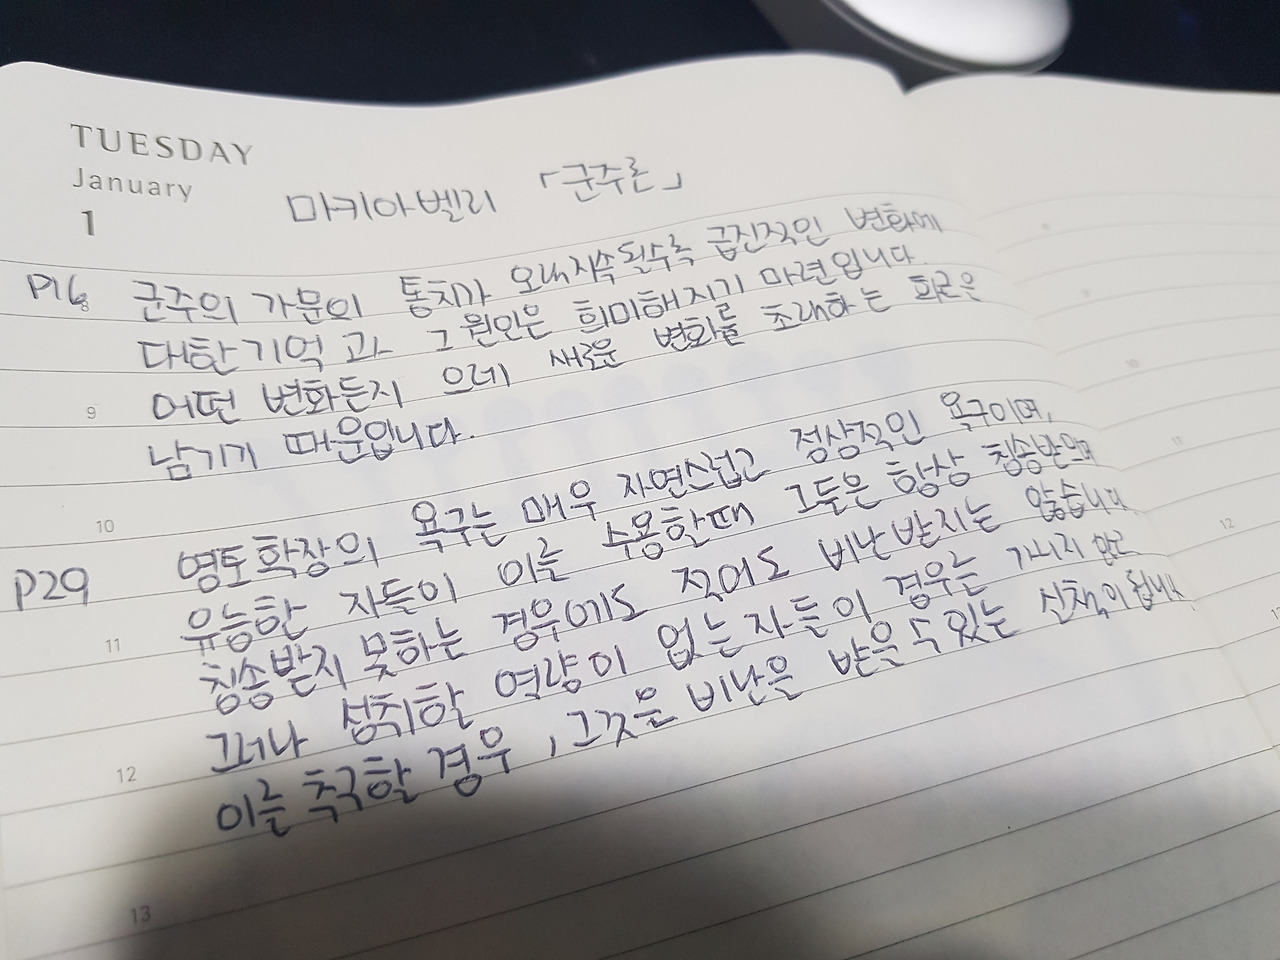 TUESDAY
January
1
마키아벨리 「군주론」
P16 군주의 가문이 통치가 오래지속될수록 급진적인 변화에
대한 기억과 그 원인은 희미해지기 마련입니다.
9 어떤 변화든지 으레 새로운 변화를 초래하는 화근은
남기기 때문입니다.
10
P29 영토확장의 욕구는 매우 자연스럽고 정상적인 욕구이며,
11 유능한 자들이 이를 수용할때 그들은 항상 칭송받으며
칭송받지 못하는 경우에도 적어도 비난받지는 않습니다.
12 그러나 성취할 역량이 없는 자들이 경우는 가리지 않고
이를 추구할 경우, 그것은 비난을 받을 수 있는 실책이 됩니다.
13
10
11
12